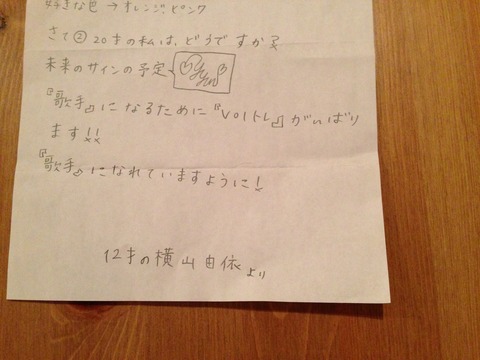 好きな色→オレンジ、ピンク
さて② 20才の私は、どうですか?
未来のサインの予定
『歌手』になるために『Volトレ』がんばり
ます!!
『歌手』になれていますように!
12才の横山由依より